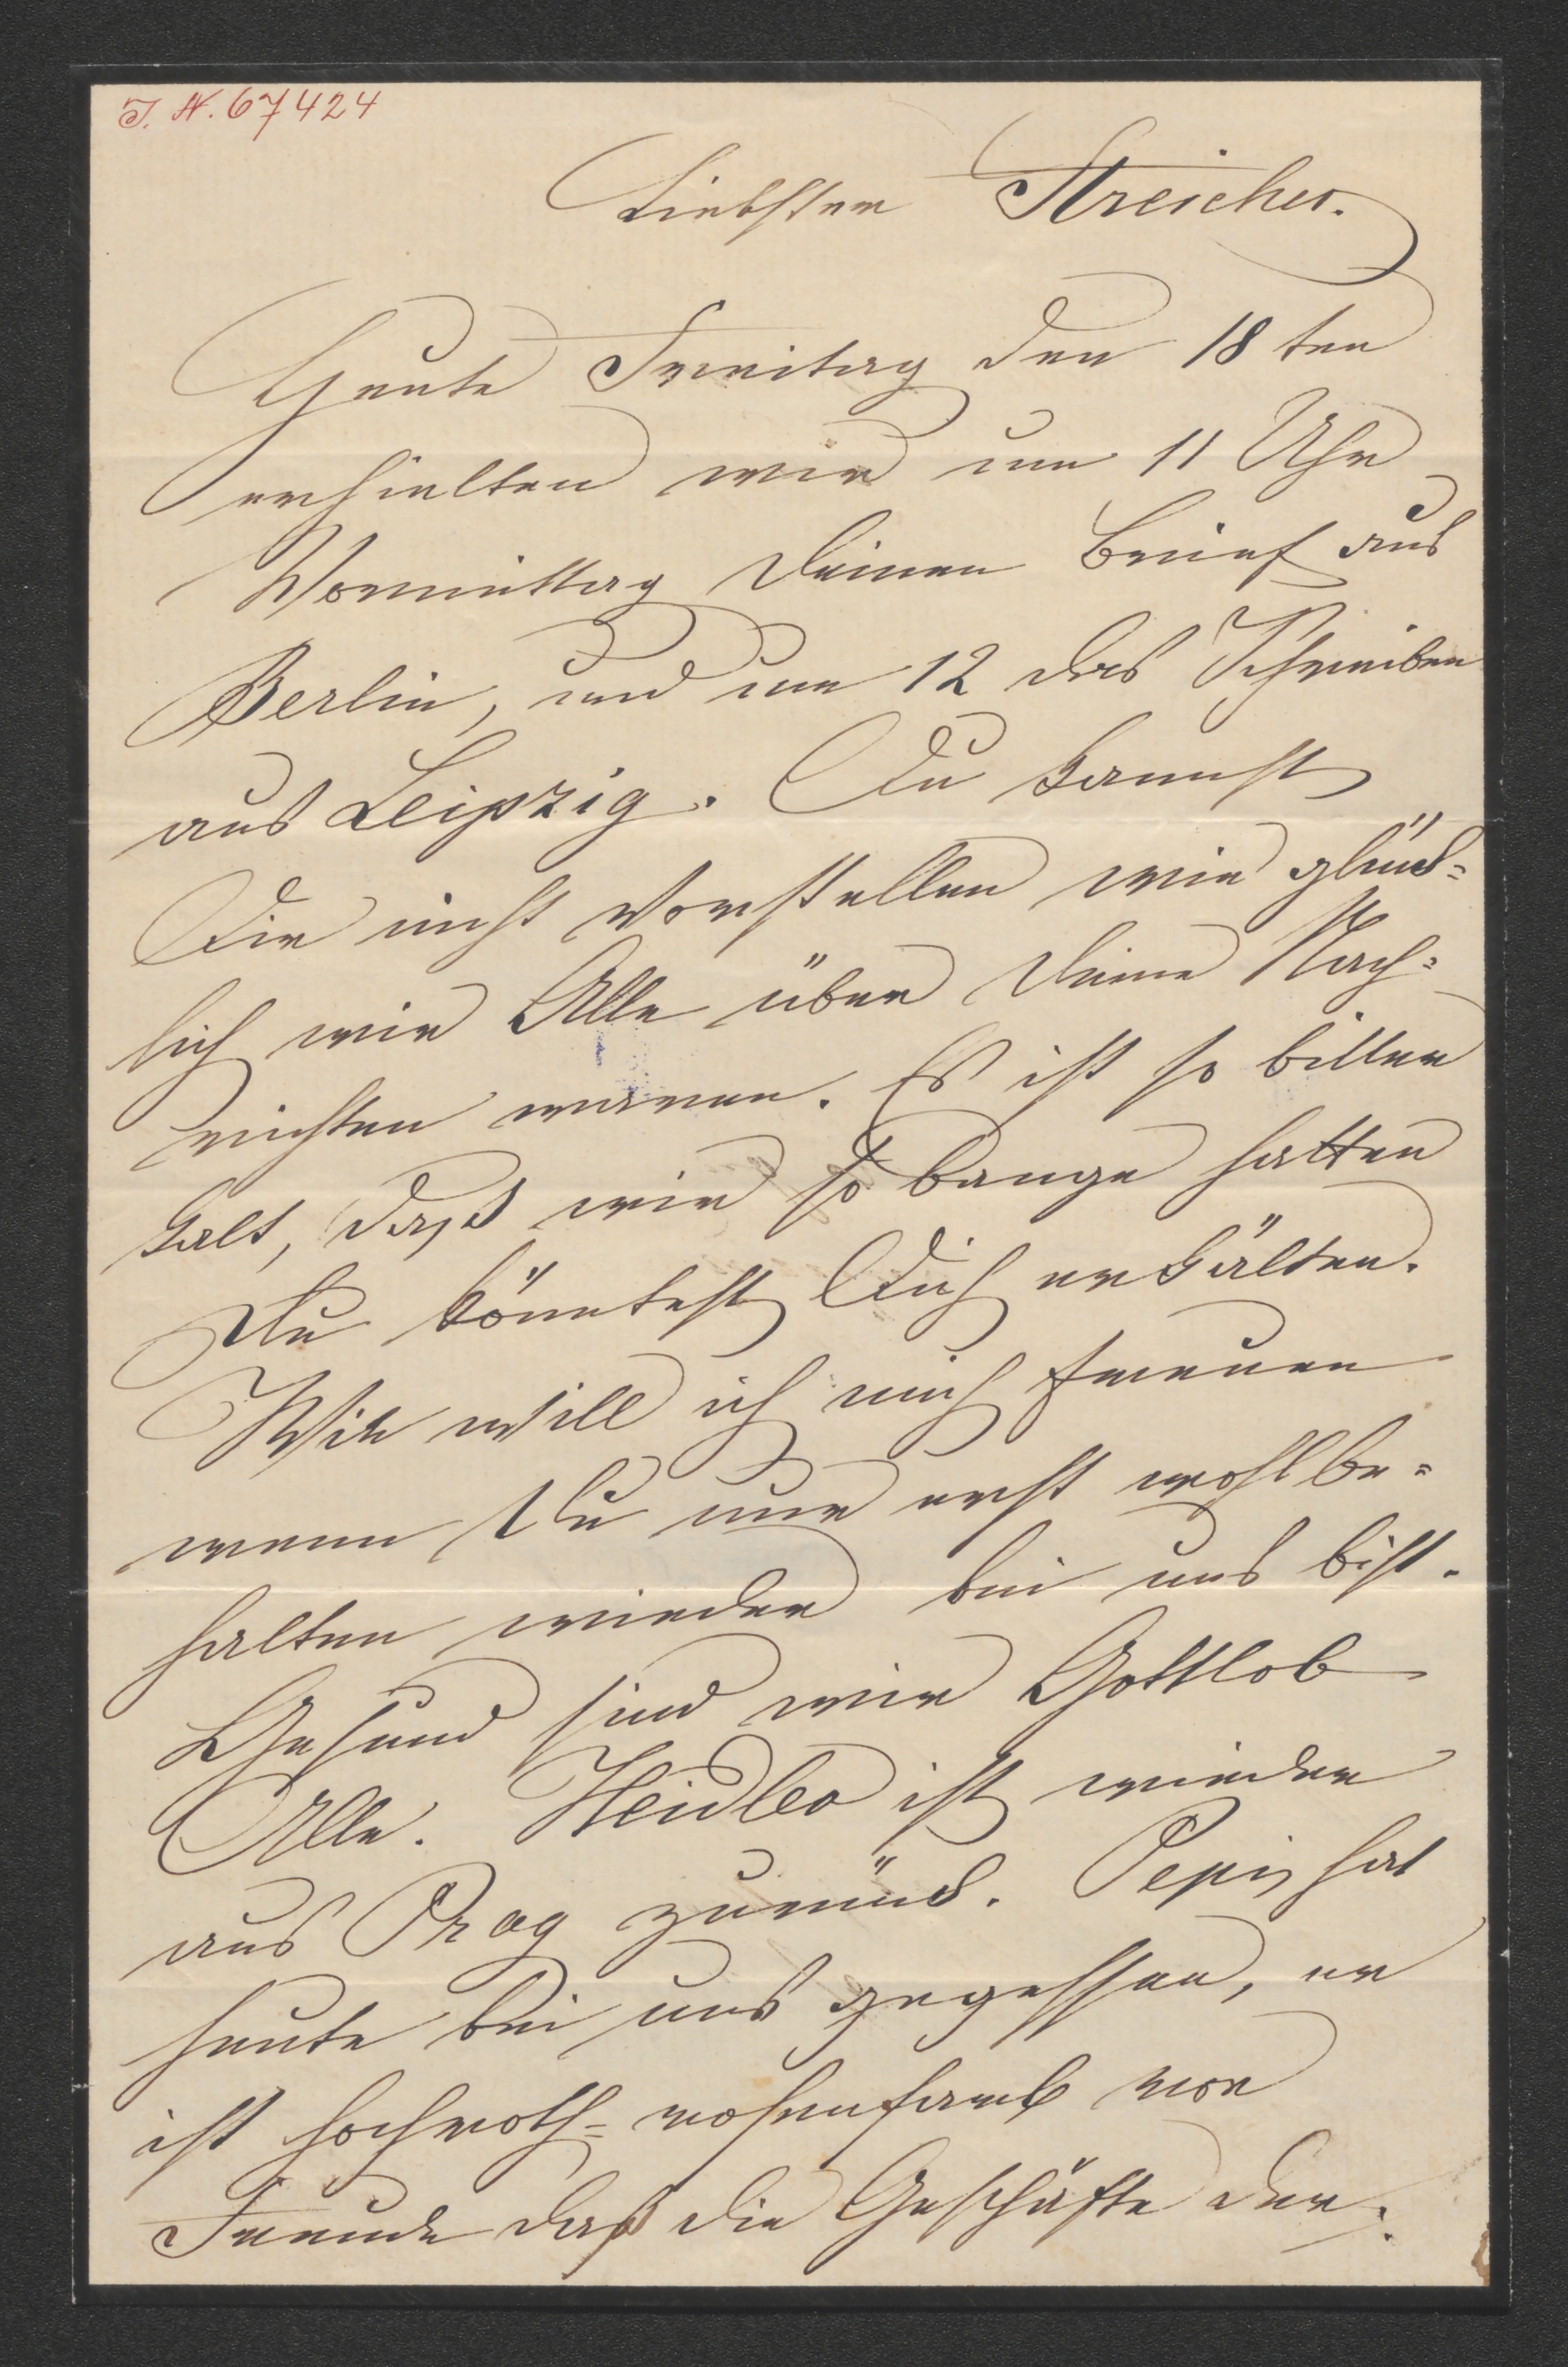 I. N. 67424
Liebster Streicher.
Heute Freitag den 18ten
erhielten wir um 11 Uhr
Vormittag Deinen Brief aus
Berlin, und um 12 das Schreiben
aus Leipzig. Du kannst
Dir nicht vorstellen wie glück=
lich wir Alle über Deine Nach=
richten waren. Es ist so bitter
kalt, daß wir so bange hatten
Du könntest Dich erkälten.
Wie will ich mich freuen
wenn Du nur erst wohlbe=
halten wieder bei uns bist.
Gesund sind wir Gottlob
Alle. Heidler ist wieder
aus Prag zurück. Pepi hat
heute bei uns gegessen, er
ist hochroth=rosenfarb vor
Freude daß die Geschäfte der